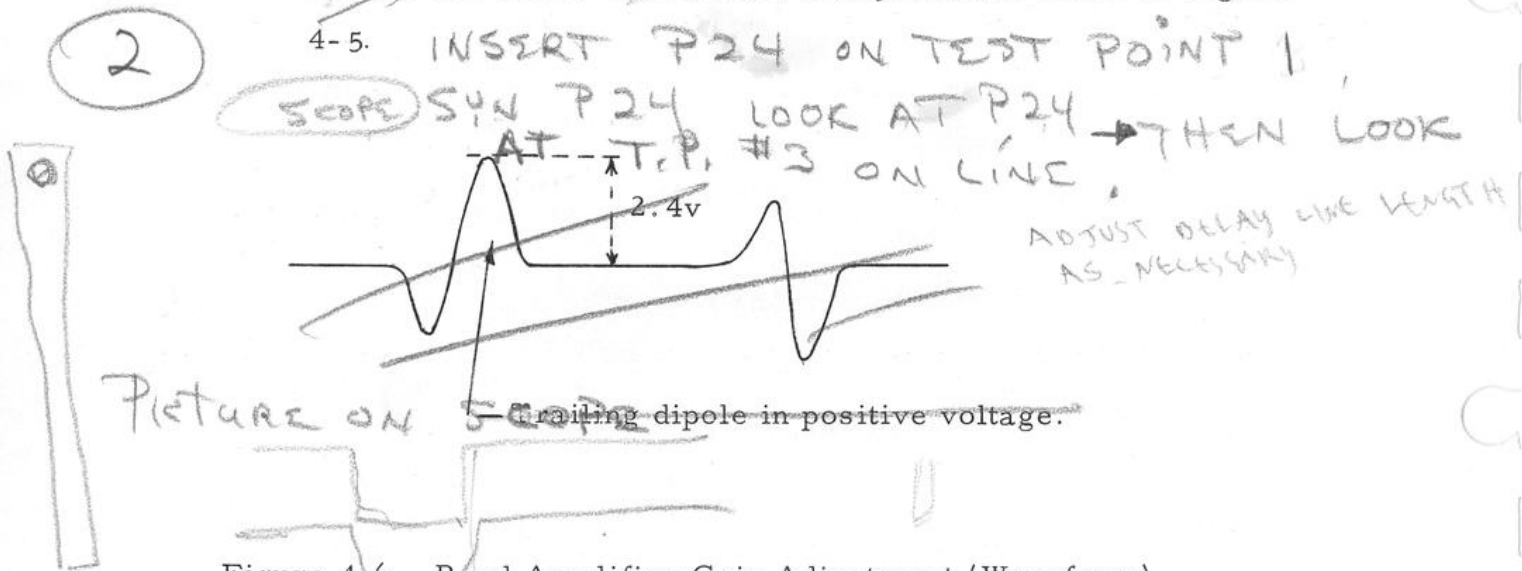 2
4-5. INSERT P24 ON TEST POINT 1
SCOPE SYN P24 LOOK AT P24 → THEN LOOK
AT T.P. #3 ON LINE.
2.4v
ADJUST DELAY LINE LENGTH
AS NECESSARY
PICTURE ON SCOPE
Trailing dipole in positive voltage.
Amplifier Gain Adjustment (Waveform)